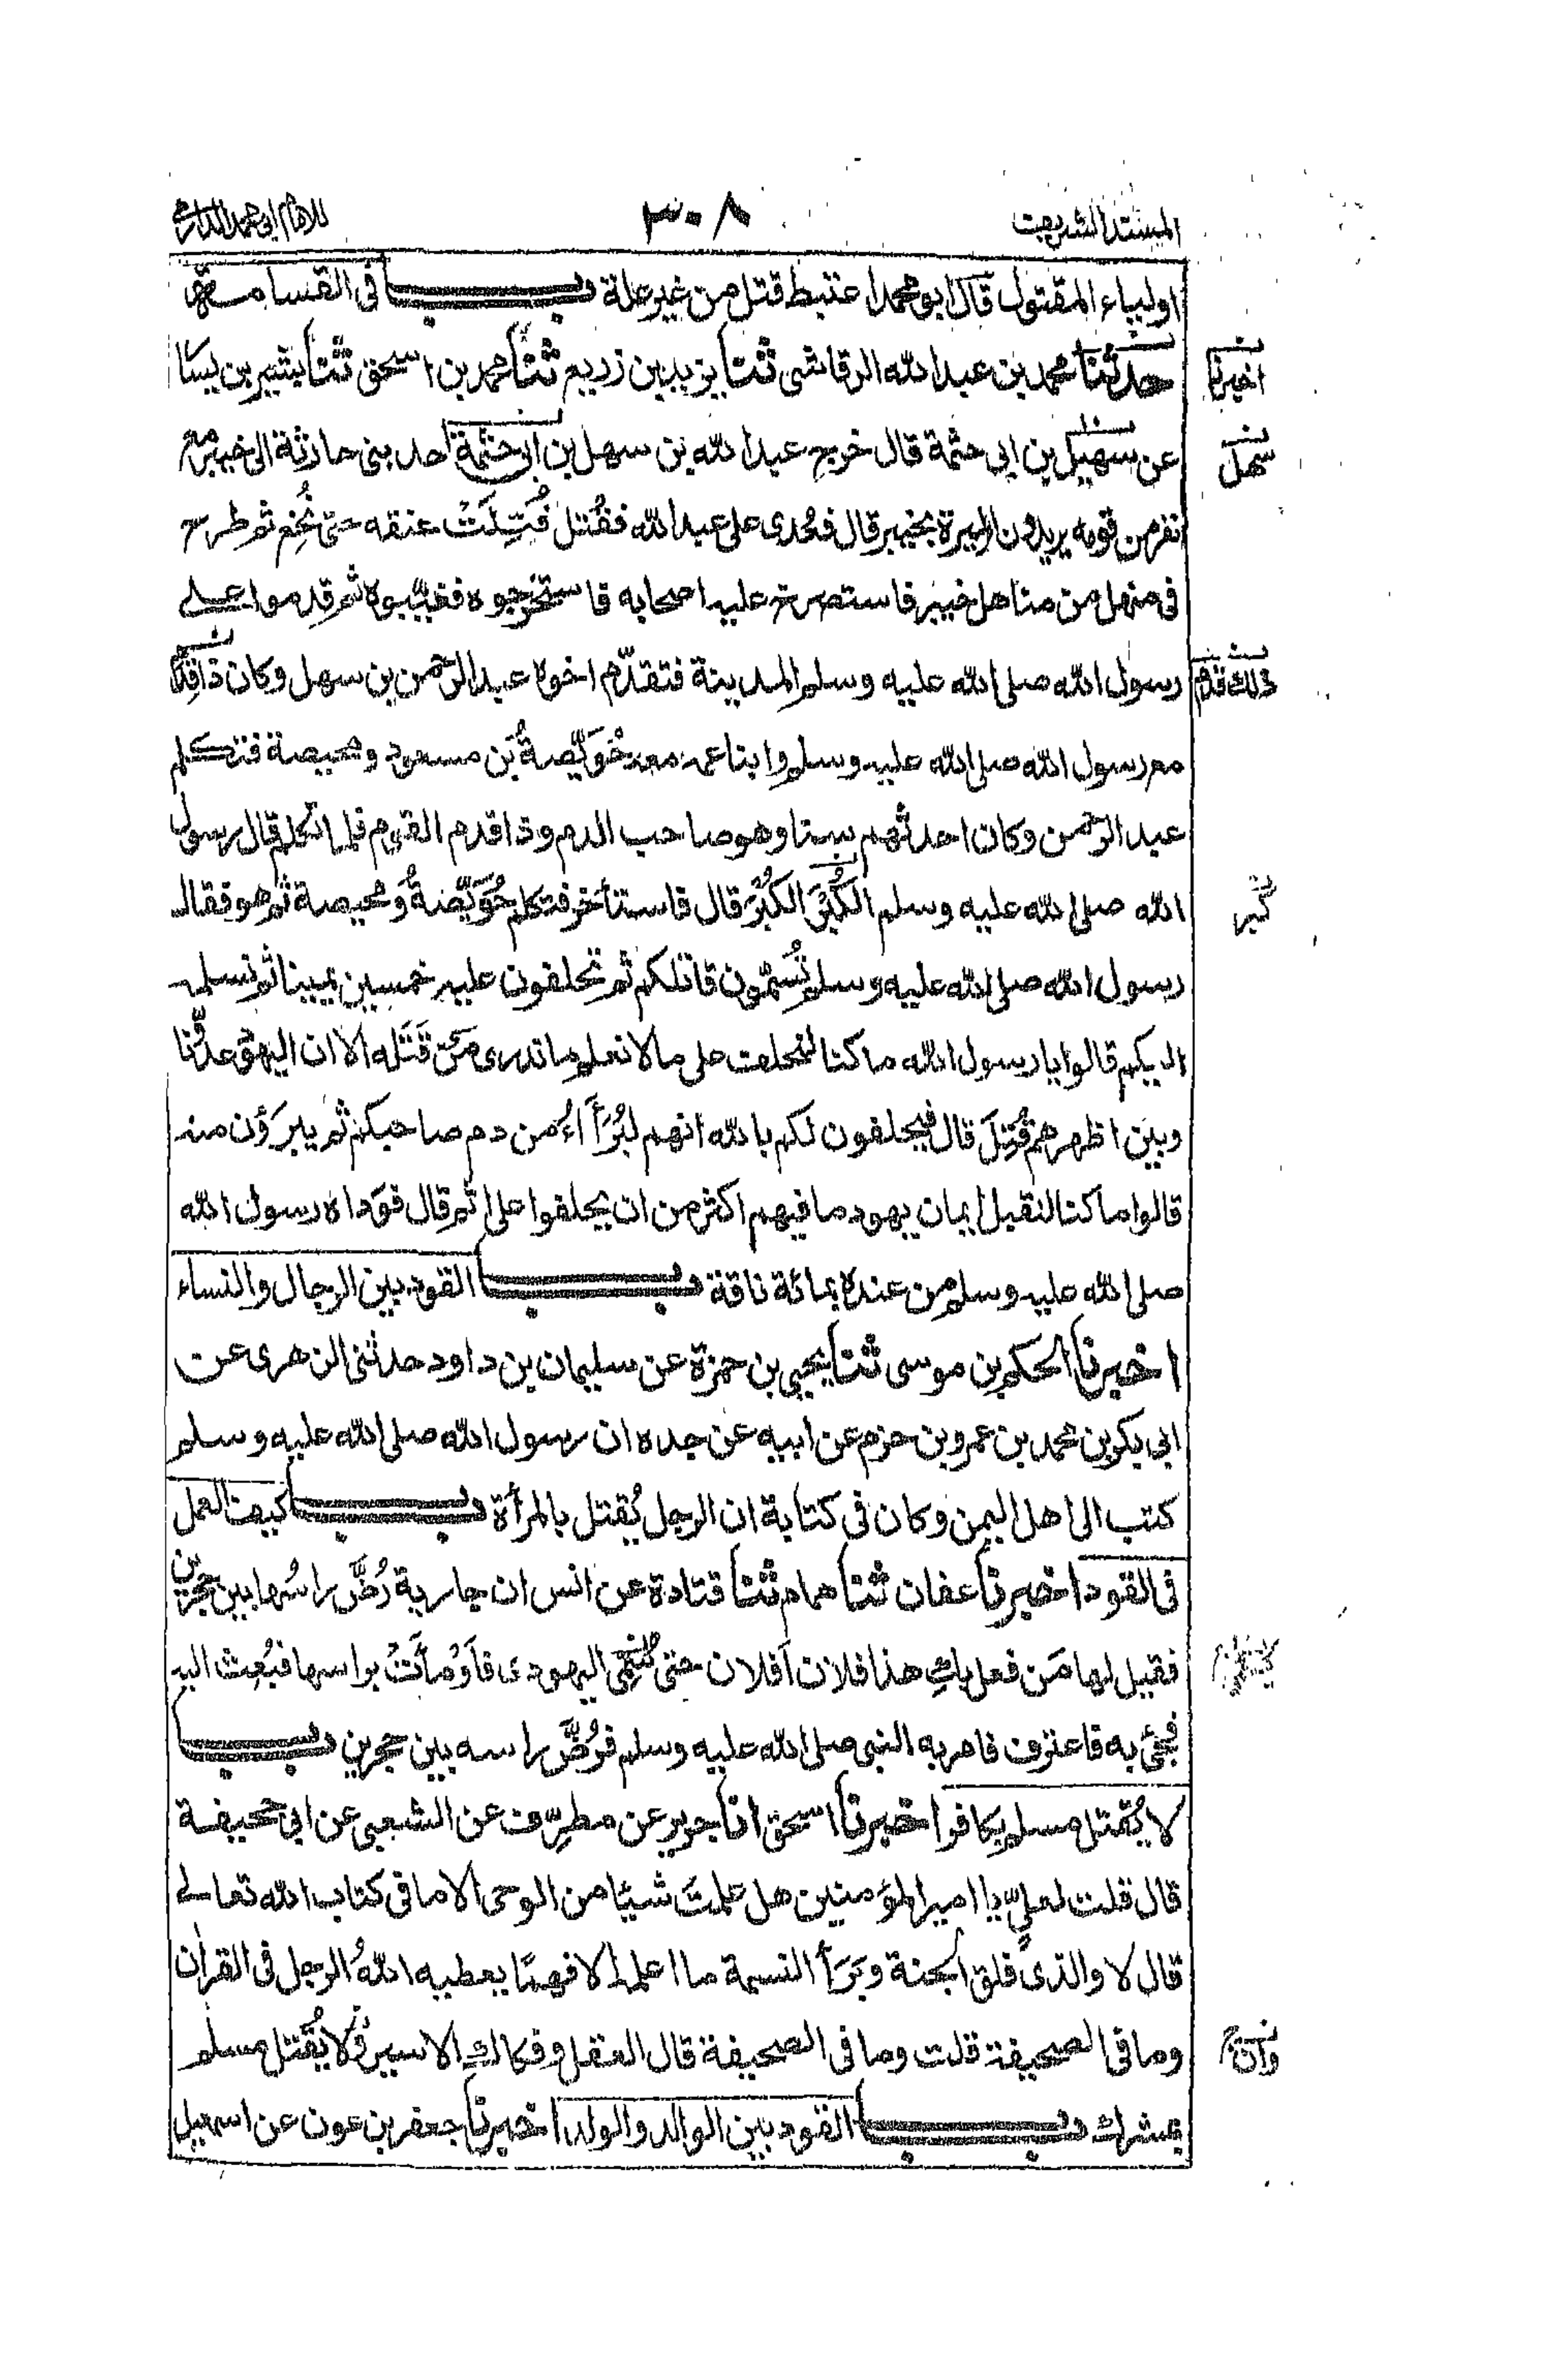 المسند الشريف ٣٠٨ للامام ابي محمد الدارمي
اولياء المقتول قال ابو محمد اعتبط قتل من غير علة باب في القسامة
حدثنا محمد بن عبد الله الرقاشي ثنا يزيد بن زريع ثنا محمد بن اسحق ثنا بشير بن يسا
اخبرنا
عن سهيل بن ابي حثمة قال خرج عبد الله بن سهل بن ابي حثمة احد بني حارثة الى خيبر مع
سهل
نفر من قومه يريدون الميرة بخيبر قال فعُدي على عبد الله فقُتل فُتِلَتْ عنقه حتى نُخِع ثم طرح
في منهل من مناهل خيبر فاستصرخ عليه اصحابه فاستخرجوه فغيّبوه ثم قدموا على
رسول الله صلى الله عليه وسلم المدينة فتقدّم اخوه عبد الرحمن بن سهل وكان ذا قِدَم
ذلك قدم
مع رسول الله صلى الله عليه وسلم وابنا عمه معه حُوَيّصةُ بن مسعود ومحيصة فتكلم
عبد الرحمن وكان احدثهم سنا وهو صاحب الدم وذا قدم القوم فلما تكلم قال رسول
الله صلى الله عليه وسلم الكُبْرَ الكُبْرَ قال فاستأخر فتكلم حُوَيّصةُ ومحيصة ثم هو فقال
كبر
رسول الله صلى الله عليه وسلم تُسَمّون قاتلكم ثم تحلفون عليه خمسين يمينا ثم نسلمه
اليكم قالوا يا رسول الله ما كنا لنحلف على ما لا نعلم ما ندري مَن قَتَله الا ان اليهود عدوُّنا
وبين اظهرهم قُتِلَ قال فيحلفون لكم بالله انهم لبُرَآءُ من دم صاحبكم ثم يبرَؤن منه
قالوا ما كنا لنقبل ايمان يهود ما فيهم اكثر من ان يحلفوا على اثم قال فوَداه رسول الله
صلى الله عليه وسلم من عنده بمائة ناقة باب القود بين الرجال والنساء
اخبرنا الحكم بن موسى ثنا يحيى بن حمزة عن سليمان بن داود حدثني الزهري عن
ابي بكر بن محمد بن عمرو بن حزم عن ابيه عن جده ان رسول الله صلى الله عليه وسلم
كتب الى اهل اليمن وكان في كتابة ان الرجل يُقتل بالمرأة باب كيف العمل
في القود اخبرنا عفان ثنا همام ثنا قتادة عن انس ان جارية رُضَّ راسُها بين حجرين
فقيل لها مَن فعل بكِ هذا فلان أفلان حتى سُمّي اليهودي فأومأتْ براسها فبُعِث اليه
فجيئ به فاعترف فامر به النبي صلى الله عليه وسلم فرُضَّ راسه بين حجرين باب
لا يُقتل مسلم بكافر اخبرنا اسحق انا جرير عن مطرّف عن الشعبي عن ابي جحيفة
قال قلت لعليّ يا امير المؤمنين هل علمتَ شيئا من الوحي الا ما في كتاب الله تعالى
قال لا والذي فلق الجنة وبَرَأَ النسمة ما اعلمه الا فهمًا يعطيه اللهُ الرجل في القران
وما في الصحيفة قلت وما في الصحيفة قال العقل وفكاك الاسير ولا يُقتل مسلم
وان
بمشرك باب القود بين الوالد والولد اخبرنا جعفر بن عون عن اسمعيل